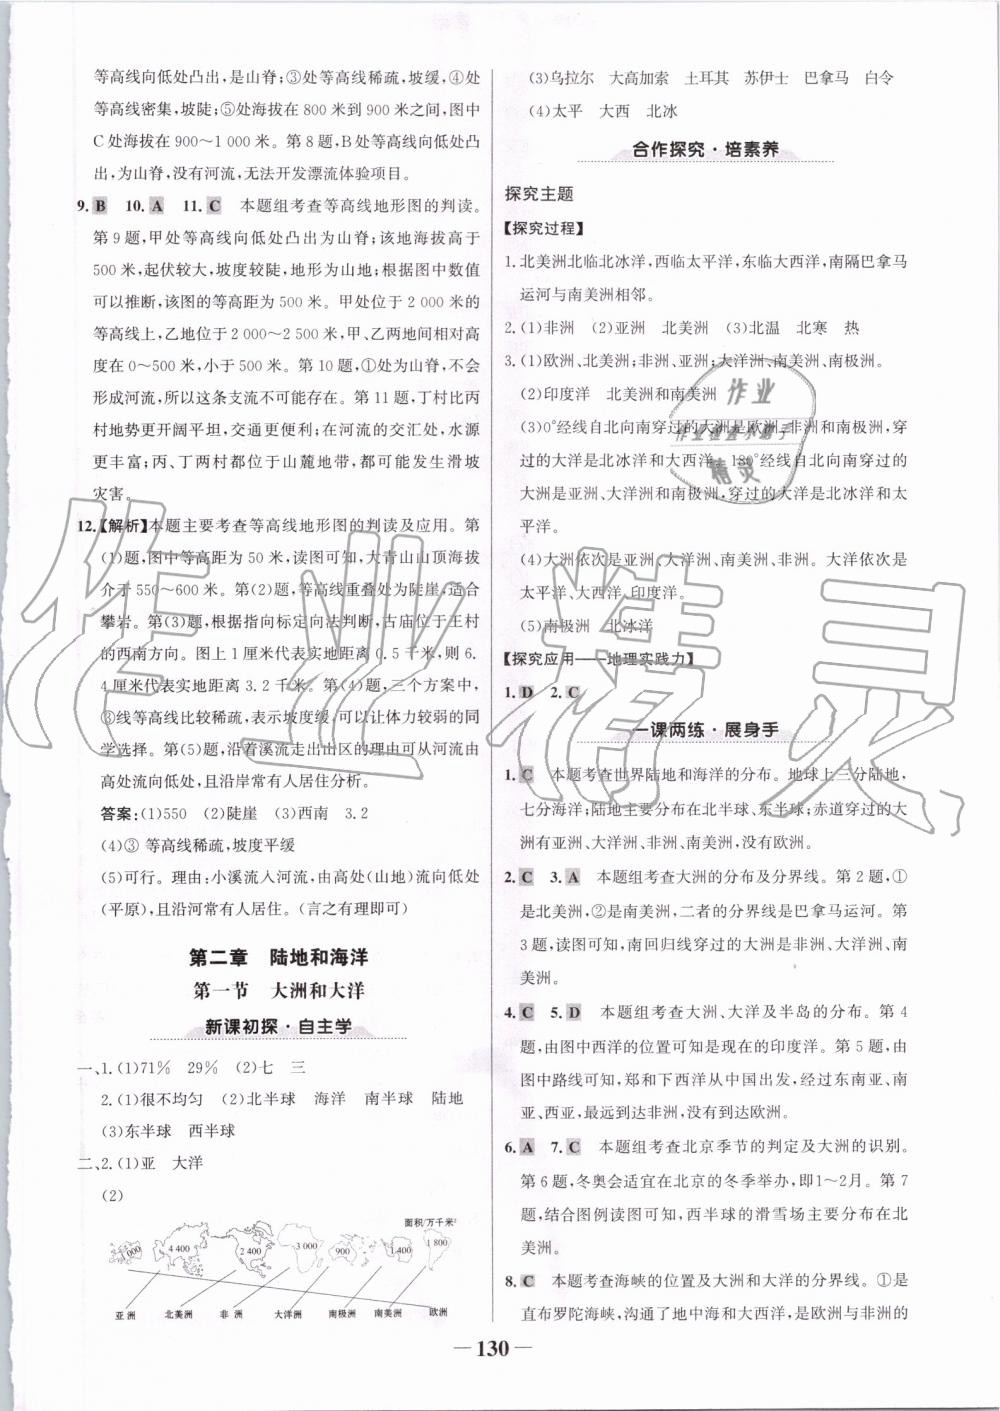 等高线向低处凸出,是山脊;③处等高线稀疏,坡缓,④处
等高线密集,坡陡;⑤处海拔在 800 米到 900 米之间,图中
C 处海拔在 900～1 000 米。第 8 题,B 处等高线向低处凸
出,为山脊,没有河流,无法开发漂流体验项目。
9. B 10. A 11. C 本题组考查等高线地形图的判读。
第 9 题,甲处等高线向低处凸出为山脊;该地海拔高于
500 米,起伏较大,坡度较陡,地形为山地;根据图中数值
可以推断,该图的等高距为 500 米。甲处位于 2 000 米的
等高线上,乙地位于 2 000～2 500 米,甲、乙两地间相对高
度在 0～500 米,小于 500 米。第 10 题,①处为山脊,不会
形成河流,所以这条支流不可能存在。第 11 题,丁村比丙
村地势更开阔平坦,交通更便利;在河流的交汇处,水源
更丰富;丙、丁两村都位于山麓地带,都可能发生滑坡
灾害。
12.【解析】本题主要考查等高线地形图的判读及应用。第
(1)题,图中等高距为 50 米,读图可知,大青山山顶海拔
介于 550～600 米。第(2)题,等高线重叠处为陡崖,可
攀岩。第(3)题,根据指向标定向法判断,古庙位于王村
的西南方向。图上 1 厘米代表实地距离 0.5 千米,则 6.
4 厘米代表实地距离 3.2 千米。第(4)题,三个方案中,
③线等高线比较稀疏,表示坡度缓,可以让体力较弱的同
学选择。第(5)题,沿着溪流走出山区的理由可从河流由
高处流向低处,且沿岸常有人居住分析。
答案:(1)550 (2)陡崖 (3)西南 3.2
(4)③ 等高线稀疏,坡度平缓
(5)可行。理由:小溪流入河流,由高处(山地)流向低处
(平原),且沿河常有人居住。(言之有理即可)
第二章 陆地和海洋
第一节 大洲和大洋
新课初探·自主学
一、1.(1)71% 29% (2)七 三
2.(1)很不均匀 (2)北半球 海洋 南半球 陆地
(3)东半球 西半球
二、2.(1)亚 大洋
(2)
面积/万千米²
4 400 2 400 3 000 900 1 400 1 800
亚洲 北美洲 非洲 大洋洲 南极洲 南美洲 欧洲
(3)乌拉尔 大高加索 土耳其 苏伊士 巴拿马 白令
(4)太平 大西 北冰
合作探究·培素养
探究主题
【探究过程】
1. 北美洲北临北冰洋,西临太平洋,东临大西洋,南隔巴拿马
运河与南美洲相邻。
2.(1)非洲 (2)亚洲 北美洲 (3)北温 北寒 热
3.(1)欧洲、北美洲;非洲、亚洲;大洋洲、南美洲、南极洲。
(2)印度洋 北美洲和南美洲
(3)0°经线自北向南穿过的大洲是欧洲、非洲和南极洲,穿
过的大洋是北冰洋和大西洋。180°经线自北向南穿过的
大洲是亚洲、大洋洲和南极洲,穿过的大洋是北冰洋和太
平洋。
(4)大洲依次是亚洲、大洋洲、南美洲、非洲。大洋依次是
太平洋、大西洋、印度洋。
(5)南极洲 北冰洋
【探究应用——地理实践力】
1. D 2. C
一课两练·展身手
1. C 本题考查世界陆地和海洋的分布。地球上三分陆地,
七分海洋;陆地主要分布在北半球、东半球;赤道穿过的大
洲有亚洲、大洋洲、非洲、南美洲,没有欧洲。
2. C 3. A 本题组考查大洲的分布及分界线。第 2 题,①
是北美洲,②是南美洲,二者的分界线是巴拿马运河。第
3 题,读图可知,南回归线穿过的大洲是非洲、大洋洲、南
美洲。
4. C 5. D 本题组考查大洲、大洋及半岛的分布。第 4
题,由图中西洋的位置可知是现在的印度洋。第 5 题,由
图中路线可知,郑和下西洋从中国出发,经过东南亚、南
亚、西亚,最远到达非洲,没有到达欧洲。
6. A 7. C 本题组考查北京季节的判定及大洲的识别。
第 6 题,冬奥会适宜在北京的冬季举办,即 1～2 月。第 7
题,结合图例读图可知,西半球的滑雪场主要分布在北
美洲。
8. C 本题考查海峡的位置及大洲和大洋的分界线。①是
直布罗陀海峡,沟通了地中海和大西洋,是欧洲与非洲的
— 130 —
作业精灵
作业
作业检查小助手
精灵